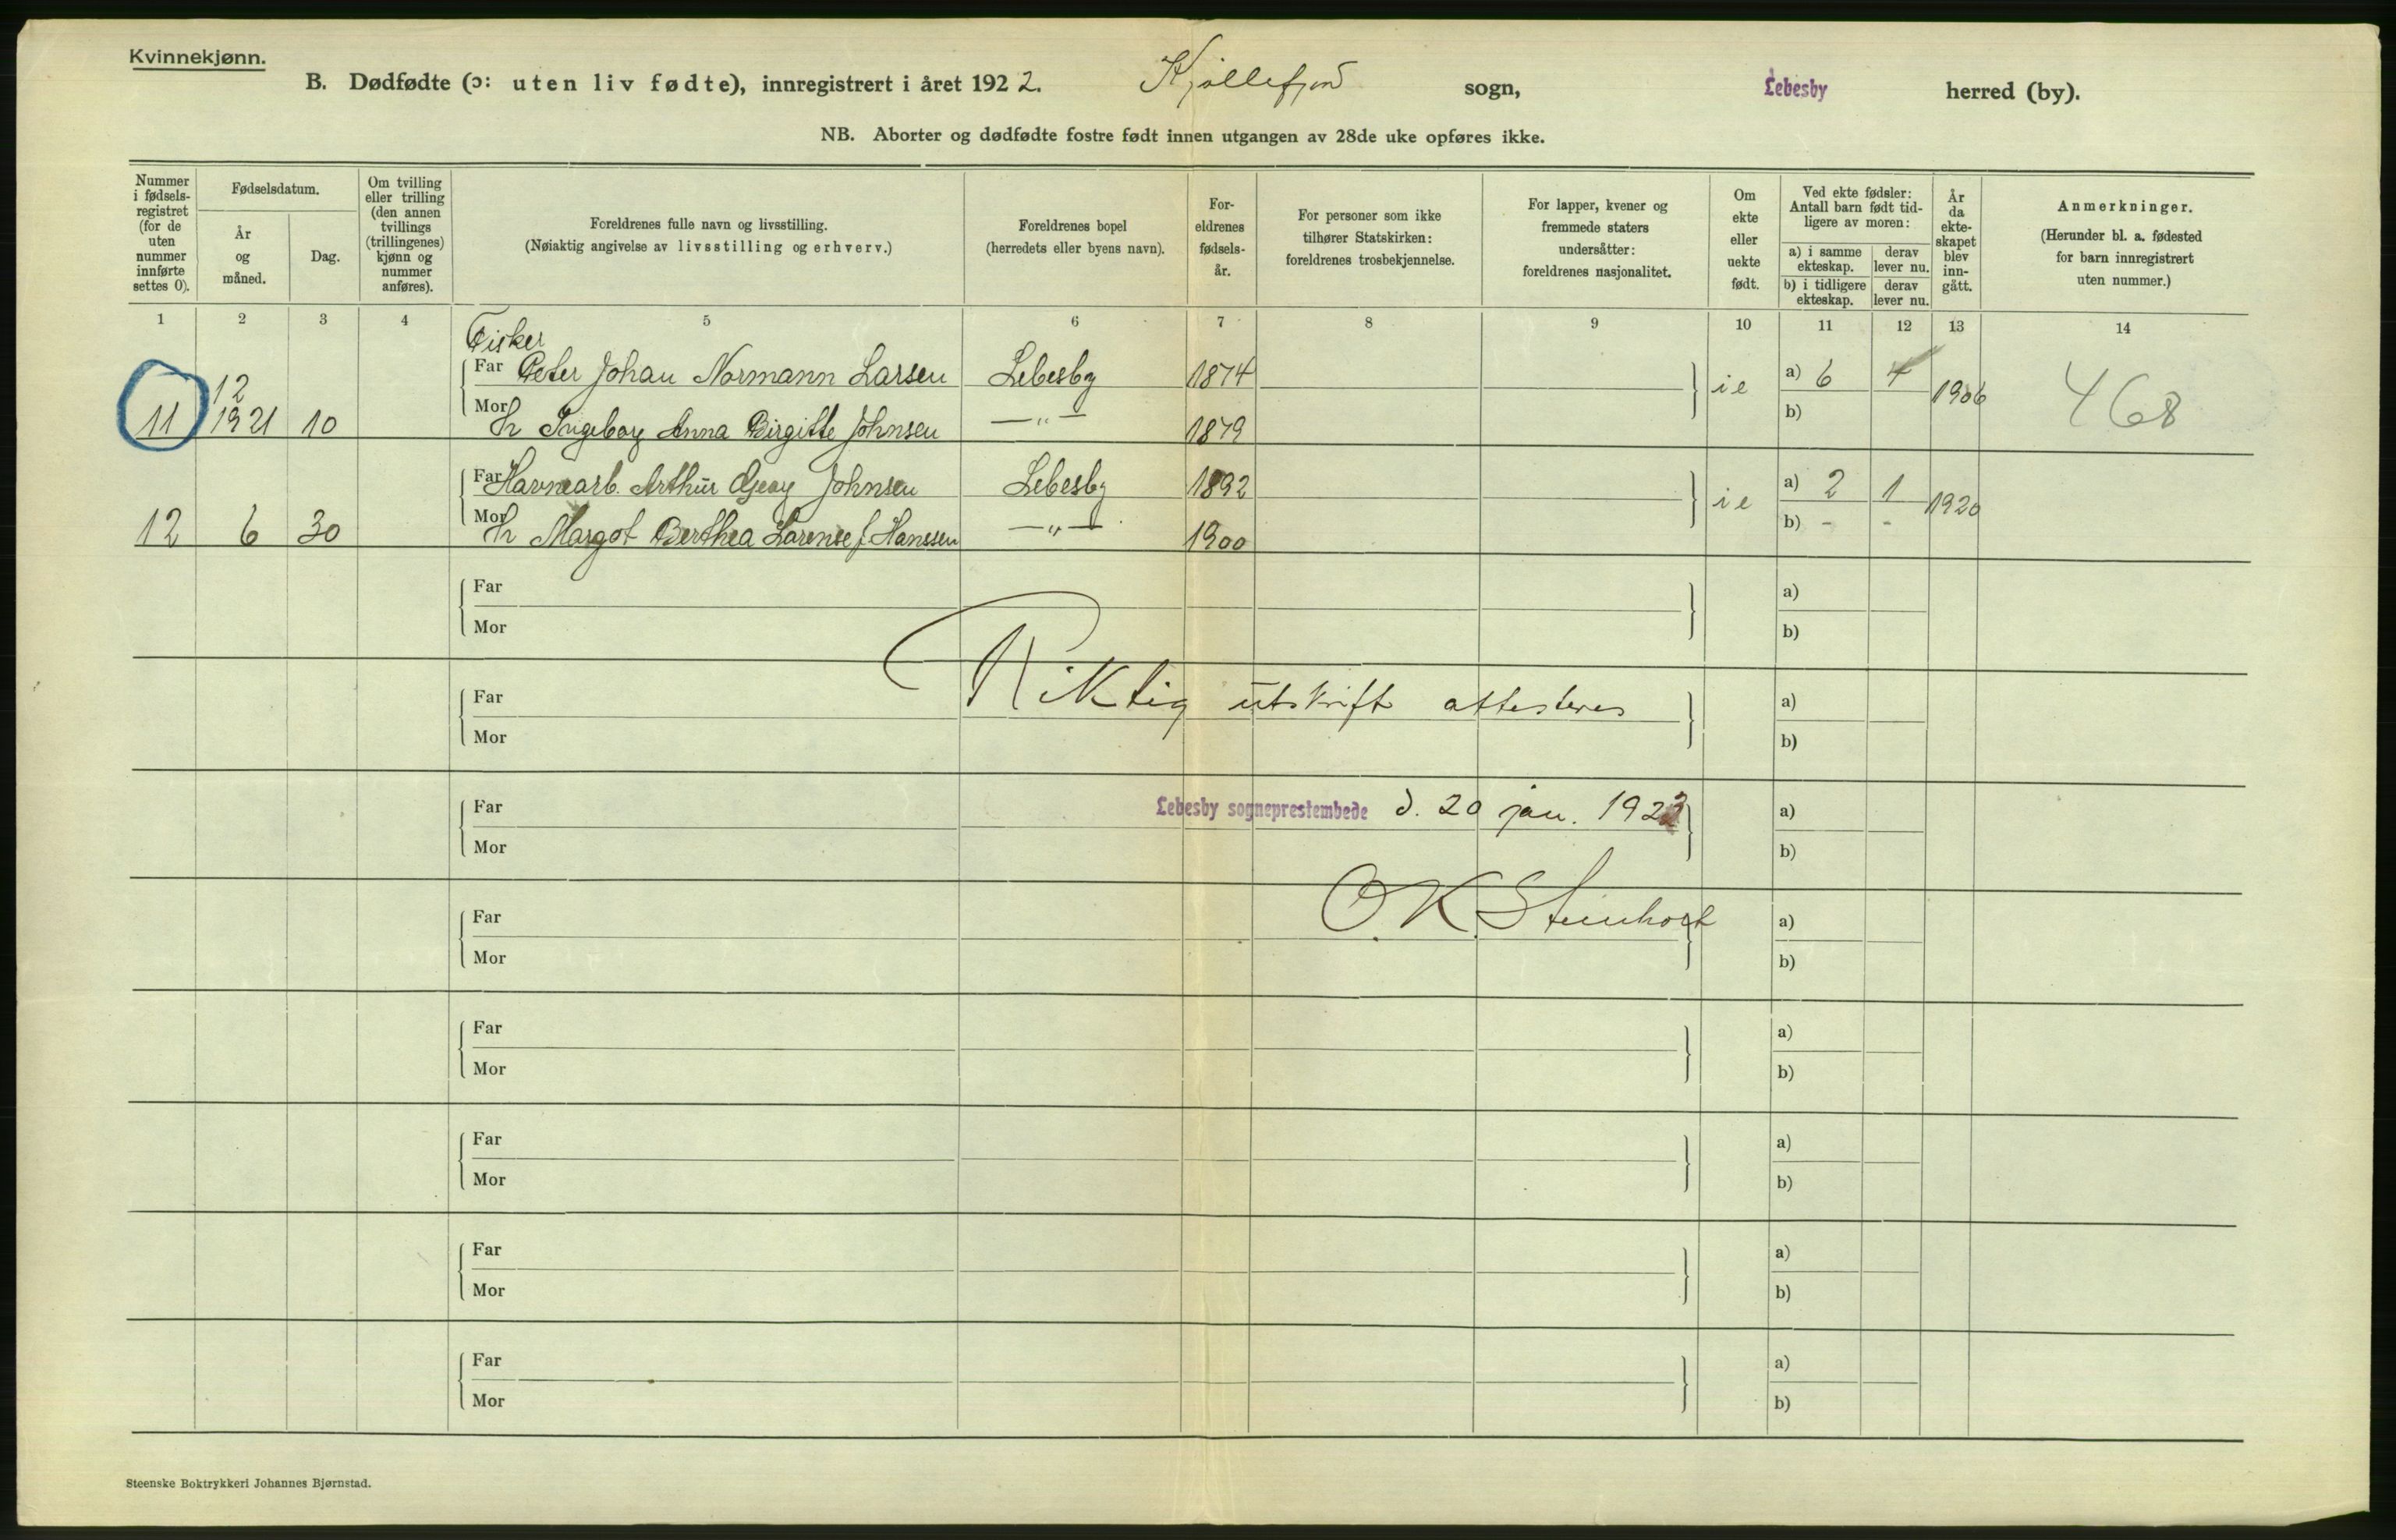 Kvinnekjønn.
B. Dødfødte (ɔ: uten liv fødte), innregistrert i året 1922. Kjøllefjord sogn, Lebesby herred (by).
NB. Aborter og dødfødte fostre født innen utgangen av 28de uke opføres ikke.
Nummer i fødsels-registret (for de uten nummer innførte settes 0).
Fødselsdatum.
År og måned.
Dag.
Om tvilling eller trilling (den annen tvillings (trillingenes) kjønn og nummer anføres).
Foreldrenes fulle navn og livsstilling.
(Nøiaktig angivelse av livsstilling og erhverv.)
Foreldrenes bopel
(herredets eller byens navn).
For-eldrenes fødsels-år.
For personer som ikke tilhører Statskirken: foreldrenes trosbekjennelse.
For lapper, kvener og fremmede staters undersåtter: foreldrenes nasjonalitet.
Om ekte eller uekte født.
Ved ekte fødsler: Antall barn født tid-ligere av moren:
a) i samme ekteskap. derav lever nu.
b) i tidligere ekteskap. derav lever nu.
År da ekte-skapet blev inn-gått.
Anmerkninger.
(Herunder bl. a. fødested for barn innregistrert uten nummer.)
1 2 3 4 5 6 7 8 9 10 11 12 13 14
Fisker
Far Peter Johan Normann Larsen Lebesby 1874 ie a) 6 4 1906 468
11 12 1921 10 Mor H Ingeborg Anna Birgitte Johnsen —„— 1879 b)
Far Havnearb. Arthur Georg Johnsen Lebesby 1892 ie a) 2 1 1920
12 6 30 Mor H Margot Berthea Larense f. Hanssen —„— 1900 b) - -
Far a)
Mor b)
Riktig utskrift attesteres
Far a)
Mor b)
Lebesby sogneprestembede d. 20 jan. 1923
Far a)
Mor b)
O. K. Steinholt
Far a)
Mor b)
Far a)
Mor b)
Far a)
Mor b)
Far a)
Mor b)
Far a)
Mor b)
Steenske Boktrykkeri Johannes Bjørnstad.